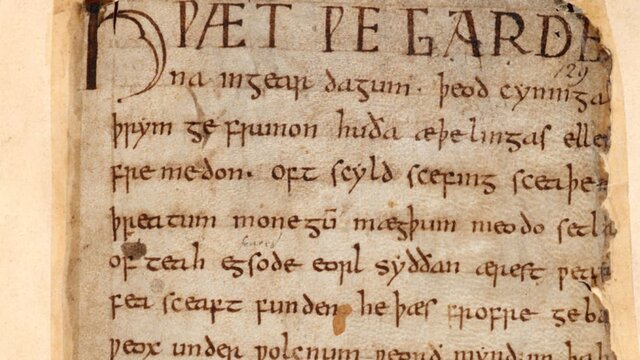 HǷÆT ǷE GARDE
na ingear dagum. þeod cyninga
þrym ge frunon huða æþelingas elle
fremedon. oft scyld scefing sceaþe
þreatum monegū mægþum meodo setla
of teah egsode eorl syððan ærest ƿear
fea sceaft funden he þæs frofre geba
ƿeox under ƿolcnum ƿeorð myndum þah